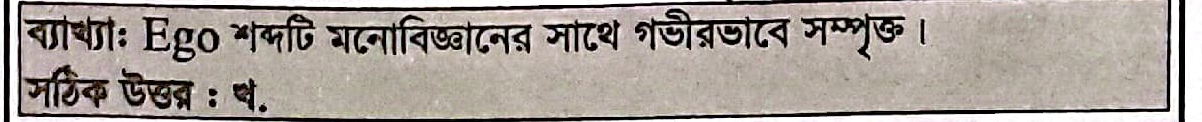 ব্যাখ্যা: Ego শব্দটি মনোবিজ্ঞানের সাথে গভীরভাবে সম্পৃক্ত।
সঠিক উত্তর : খ.